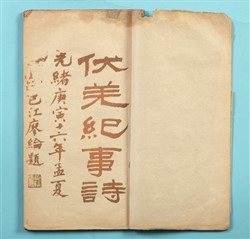 伏羌紀事詩
光緒庚寅十六年孟夏
巴江廖綸題